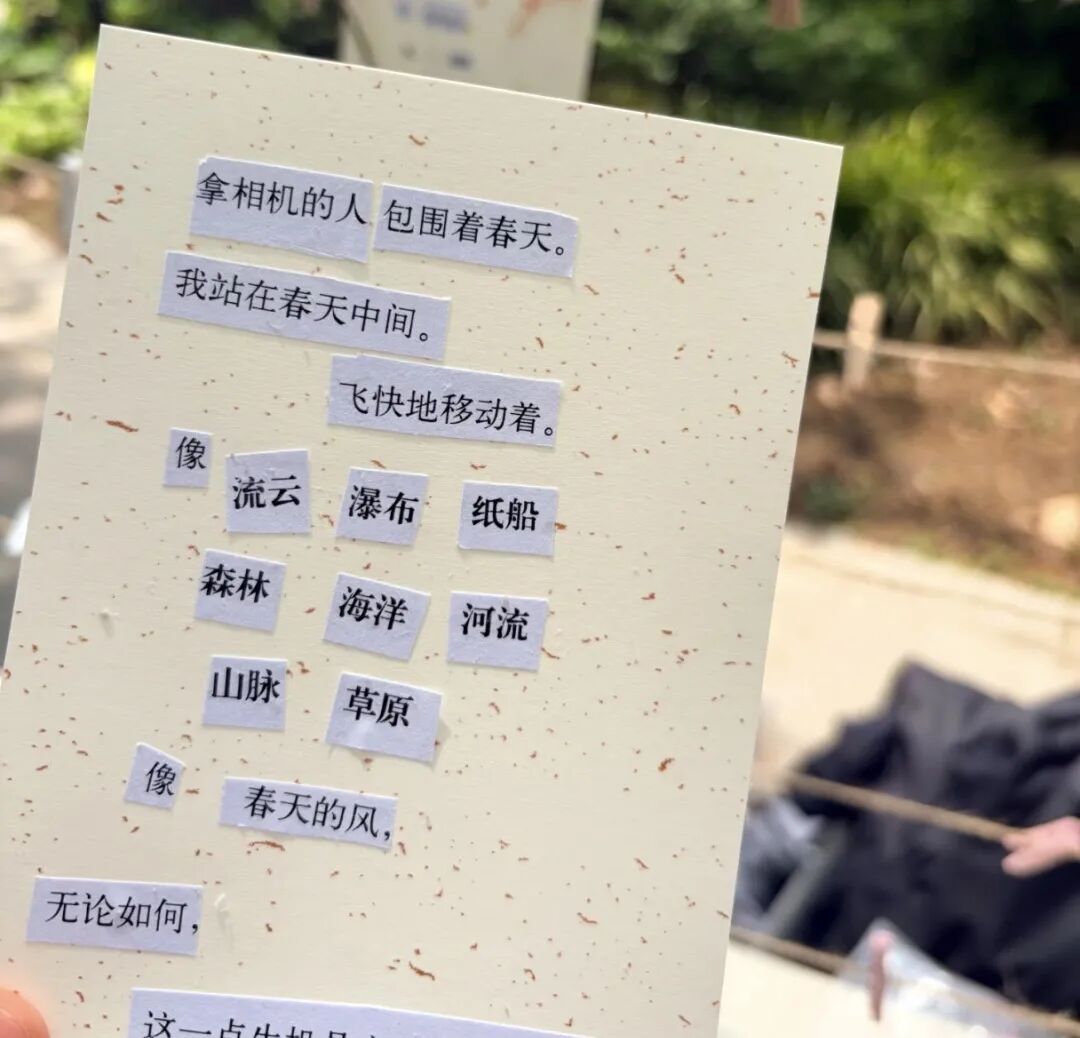 拿相机的人 包围着春天。
我站在春天中间。
飞快地移动着。
像 流云 瀑布 纸船
森林 海洋 河流
山脉 草原
像 春天的风,
无论如何,
这一点生机